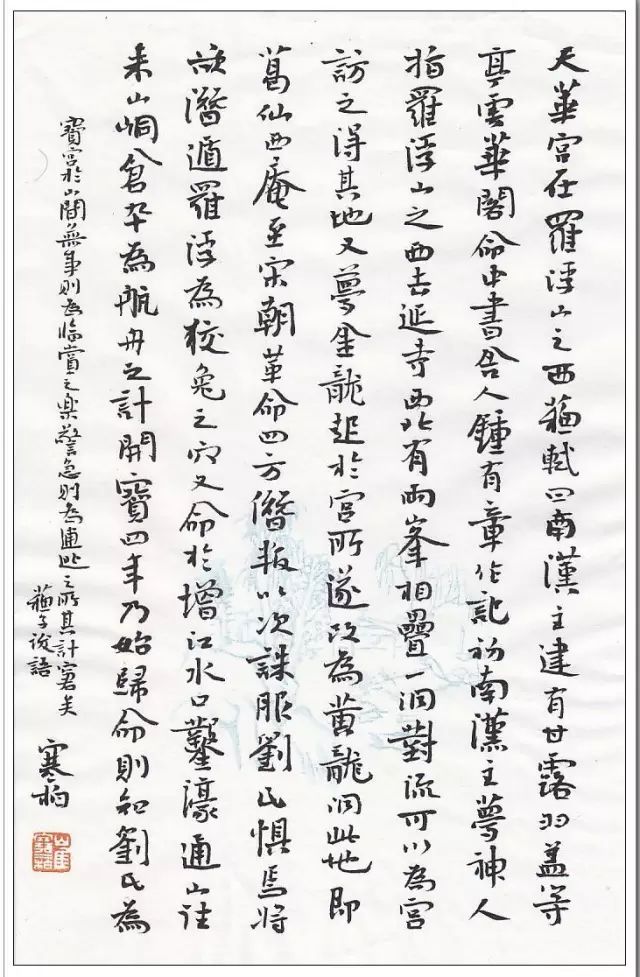 天華宮在羅浮山之西蘇軾曰南漢主建有甘露羽蓋等
亭雲華閣命中書舍人鍾有章作記初南漢主夢神人
指羅浮山之西去延寺西北有兩峯相疊一洞對流可以為宮
訪之得其地又夢金龍起於宮所遂改為黃龍洞此地即
葛仙西庵至宋朝革命四方僭叛以次誅服劉氏懼焉將
欲潛遁羅浮為狡兔之穴又命於增江水口鑿濠通山往
来山峒倉卒為航舟之計開寶四年乃始歸命則知劉氏為
寶宮於山間無事則為臨賞之樂警急則為逋逃之所其計窘矣
蘇子說語
寒柏